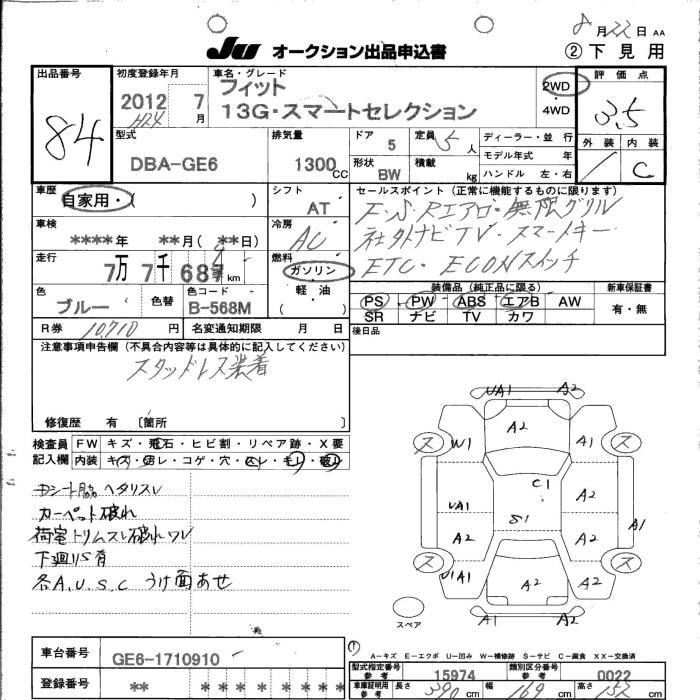 8月22日 AA
JU オークション出品申込書
②下見用
出品番号
84
初度登録年月
2012 7
H24 月
車名・グレード
フィット
13G・スマートセレクション
2WD
4WD
評価点
3.5
外装 内装
C
型式
DBA-GE6
排気量
1300CC
ドア
5
定員
5人
形状
BW
積載
kg
ディーラー・並行
モデル年式 年
ハンドル 左・右
車歴
自家用・( )
シフト
AT
セールスポイント(正常に機能するものに限ります)
F・S・Rエアロ・無限グリル
社外ナビTV・スマートキー
ETC・ECONスイッチ
車検
****年 **月(**日)
冷房
AC
走行
7万7千687km
燃料
ガソリン
軽油
( )
色
ブルー
色替
色コード
B-568M
装備品(純正品に限る)
PS PW ABS エアB AW
SR ナビ TV カワ
新車保証書
有・無
R券 10,710円 名変通知期限 月 日
後日品
注意事項申告欄(不具合内容等は具体的に記入してください)
スタッドレス装着
修復歴 有 〔箇所 〕
検査員
記入欄
FW キズ・飛石・ヒビ割・リペア跡・X要
内装 キズ・汚レ・コゲ・穴・スレ・モレ・破レ
カーペット破れ
荷室トリムスレ破れワレ
下廻りS有
各A.U.S.C うけ面あせ
UA1 A2
A2
ス W1 A1 ス
C1
UA1 S1 A2
A2 A2 A1
ス UA1 A2 A2 ス
A1 A2
スペア
A-キズ E-エクボ U-凹み W-補修跡 S-サビ C-腐食 XX-交換済
車台番号
GE6-1710910
登録番号
** * * * * * * *
型式指定番号
参考
15974
類別区分番号
参考
0022
車庫証明用
参考
長さ 390cm 幅 169cm 高さ cm